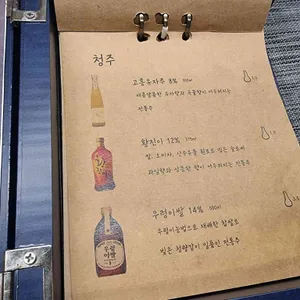 청주
고흥유자주 8% 500ml
새콤달콤한 유자향과 곡물향이 어우러지는
전통주
황진이 12% 375ml
쌀, 오미자, 산수유를 원료로 빚은 술로써
과일향과 상큼한 향이 어우러지는 전통주
우렁이쌀 14% 500ml
우렁이농법으로 재배한 찹쌀로
빚은 청량감이 일품인 전통주
우렁
이쌀